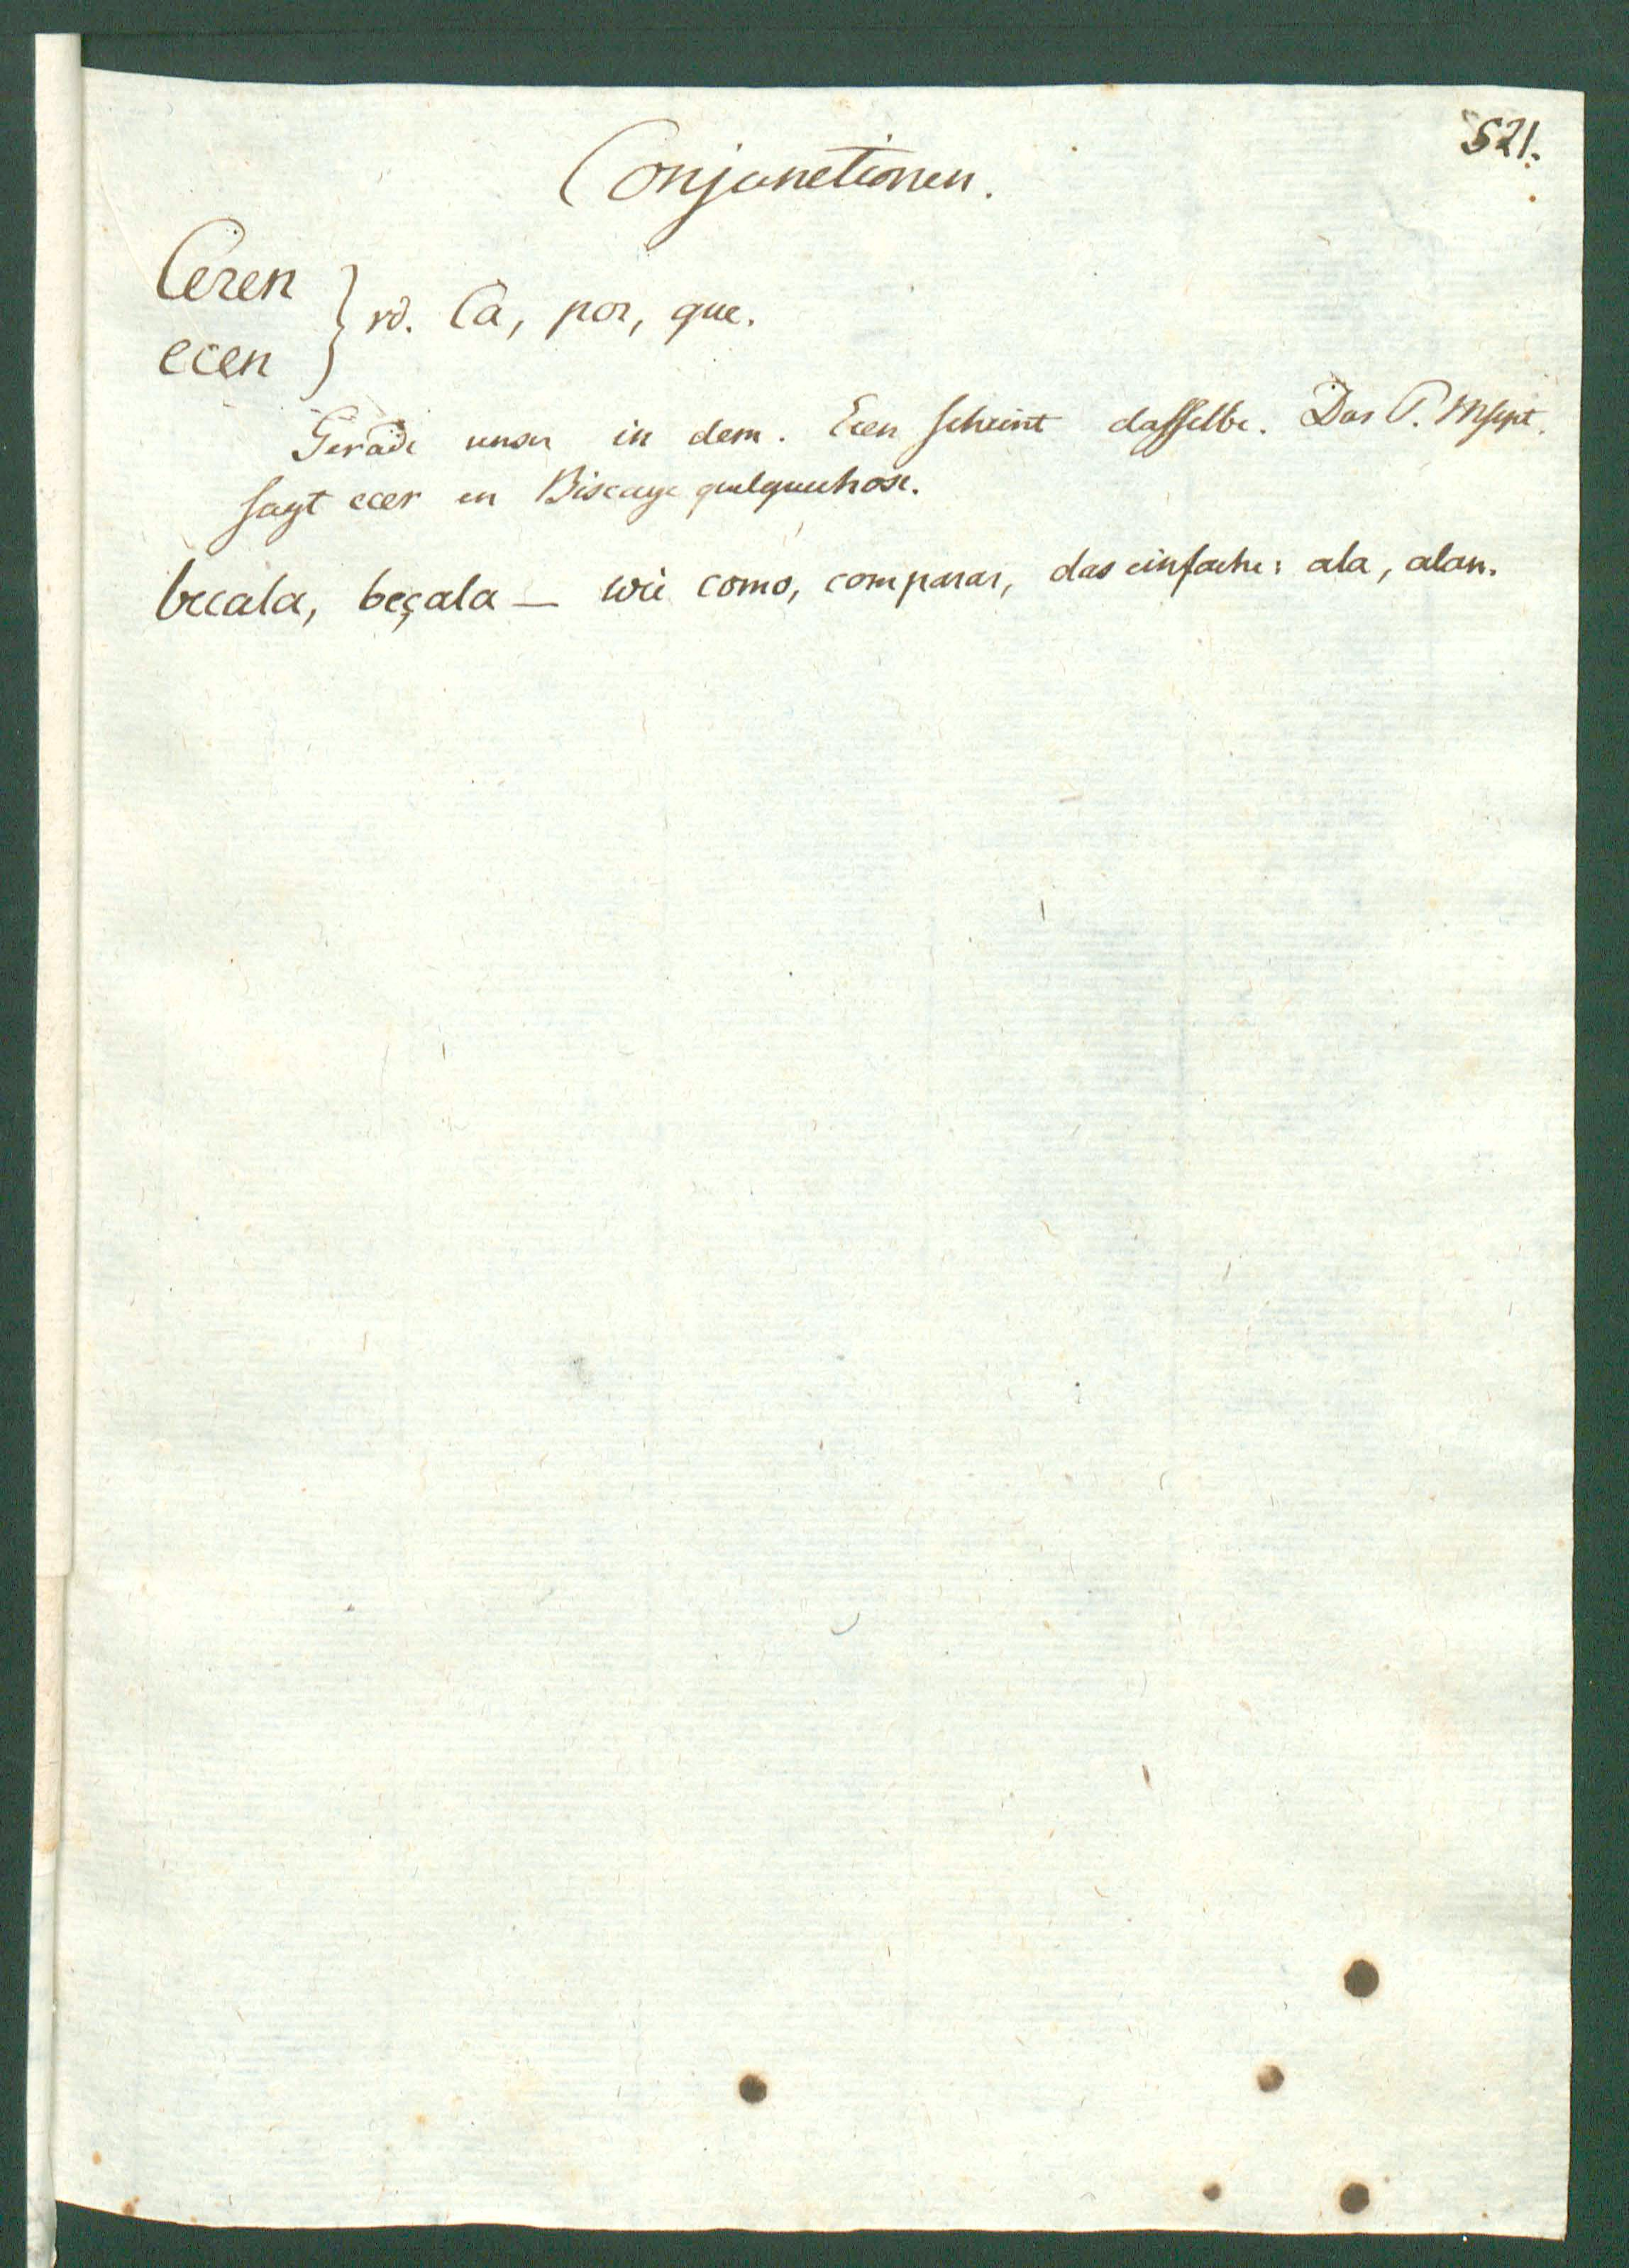 521.
Conjunctionen.
Ceren
ecen } vd. Ca, por, que.
Gerade unser in dem. Ecen scheint dasselbe. Das P. Mspt.
sagt ecer en Biscaye quelquechose.
becala, beçala — wie como, comparar, das einfache: ala, alan.